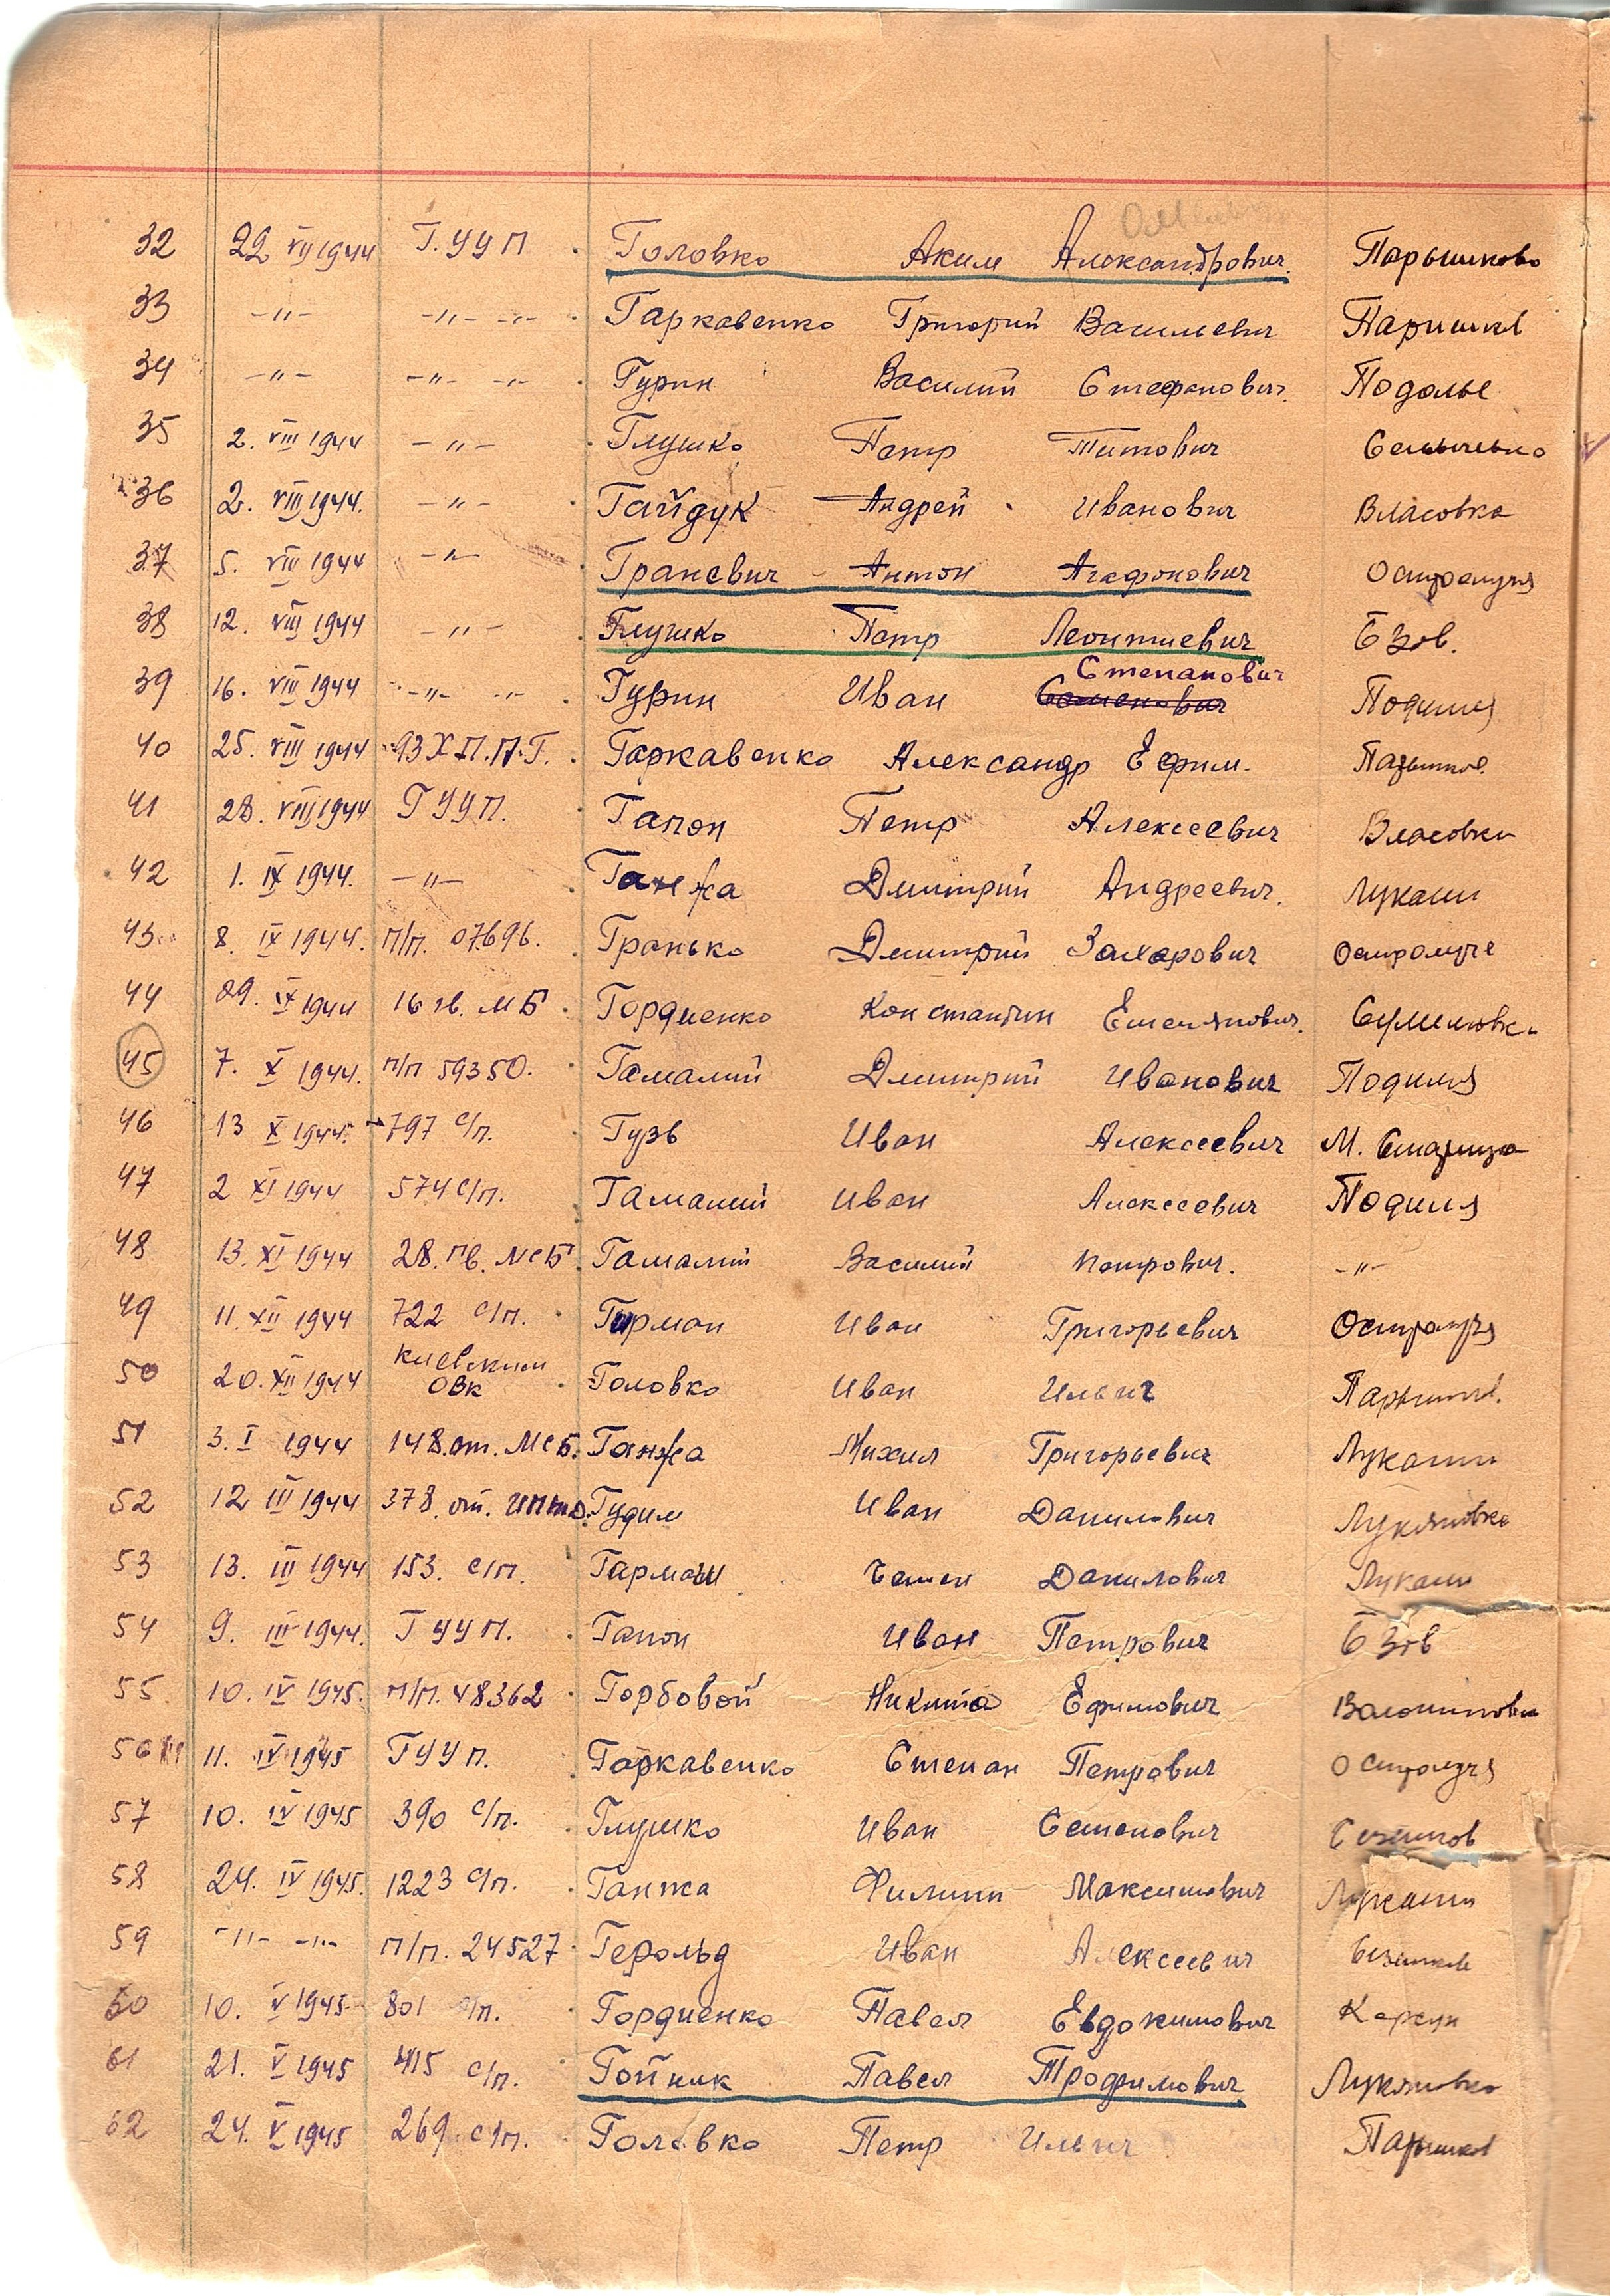 32 22 VII 1944 Г.УУП Головко Аким Александрович Парышково
33 -"- -"- -"- Гаркавенко Григорий Василевич Паришків
34 -"- -"- -"- Гурин Василий Стефанович Подолье
35 2. VIII 1944 -"- Глушко Петр Титович
36 2. VIII 1944. -"- Гайдук Андрей Иванович Власовка
37 5. VIII 1944 -"- Граневич Антон Агафонович Остролучя
38 12. VIII 1944 -"- Глушко Петр Леонтиевич Бзов.
Степанович
39 16. VIII 1944 -"- -"- Гурин Иван Семенович Подилля
40 25. VIII 1944 93 Х.П.П.Г. Гаркавенко Александр Ефим.
41 28. VIII 1944 ГУУП. Гапон Петр Алексеевич Власовки
42 1. IX 1944. -"- Ганжа Дмитрий Андреевич. Лукаши
43 8. IX 1944. п/п. 07696. Гранько Дмитрий Захарович Остролуче
44 09. IX 1944 16 гв. МБ Гордиенко Константин Емелянович.
45 7. X 1944. п/п 59350. Гамалий Дмитрий Иванович Подилля
46 13 X 1944. 797 с/п. Гузь Иван Алексеевич М. Старица
47 2 XI 1944 574 с/п. Гамалий Иван Алексеевич Подилля
48 13. XI 1944 28. гв. МСБ Гамалий Василий Петрович. -"-
49 11. XII 1944 722 с/п. Гирман Иван Григорьевич Остролучя
Киевским
50 20. XII 1944 ОВК Головко Иван Ильич Парышків.
51 3. I 1944 148. от. МСБ. Ганжа Михил Григорьевич Лукаши
52 12 III 1944 378. от. Иптд. Гудим Иван Данилович Лукяновка
53 13. III 1944 153. с/п. Гармаш Семен Данилович Лукаши
54 9. III 1944. ГУУП. Гапон Иван Петрович Бзів
55 10. IV 1945. п/п. 48362 Горбовой Никита Ефимович
56 11. IV 1945 ГУУП. Гаркавенко Степан Петрович Остролучя
57 10. IV 1945 390 с/п. Глушко Иван Семенович Сезенків
58 24. IV 1945. 1223 с/п. Ганжа Филипп Максимович Лукаши
59 -"- -"- п/п. 24527 Герольд Иван Алексеевич Сезенків
60 10. V 1945 801 с/п. Гордиенко Павел Евдокимович Корсун
61 21. V 1945 415 с/п. Гойник Павел Трофимович Лукяновка
62 24. V 1945 269 с/п. Головко Петр Ильич Паришків